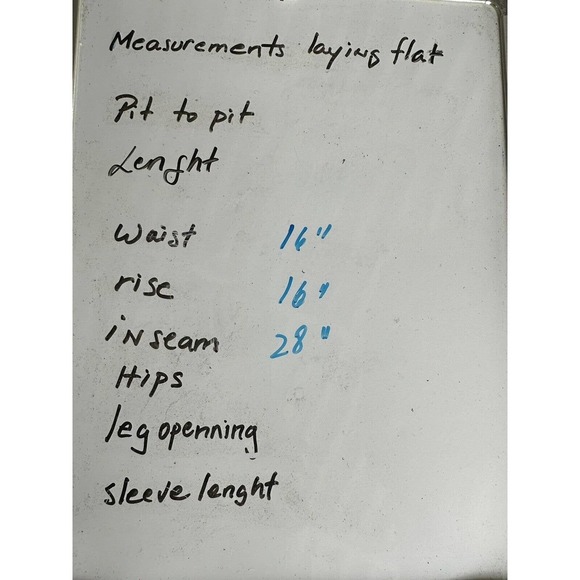 Measurements laying flat
Pit to pit
Lenght
Waist 16"
rise 16"
inseam 28"
Hips
leg openning
sleeve lenght